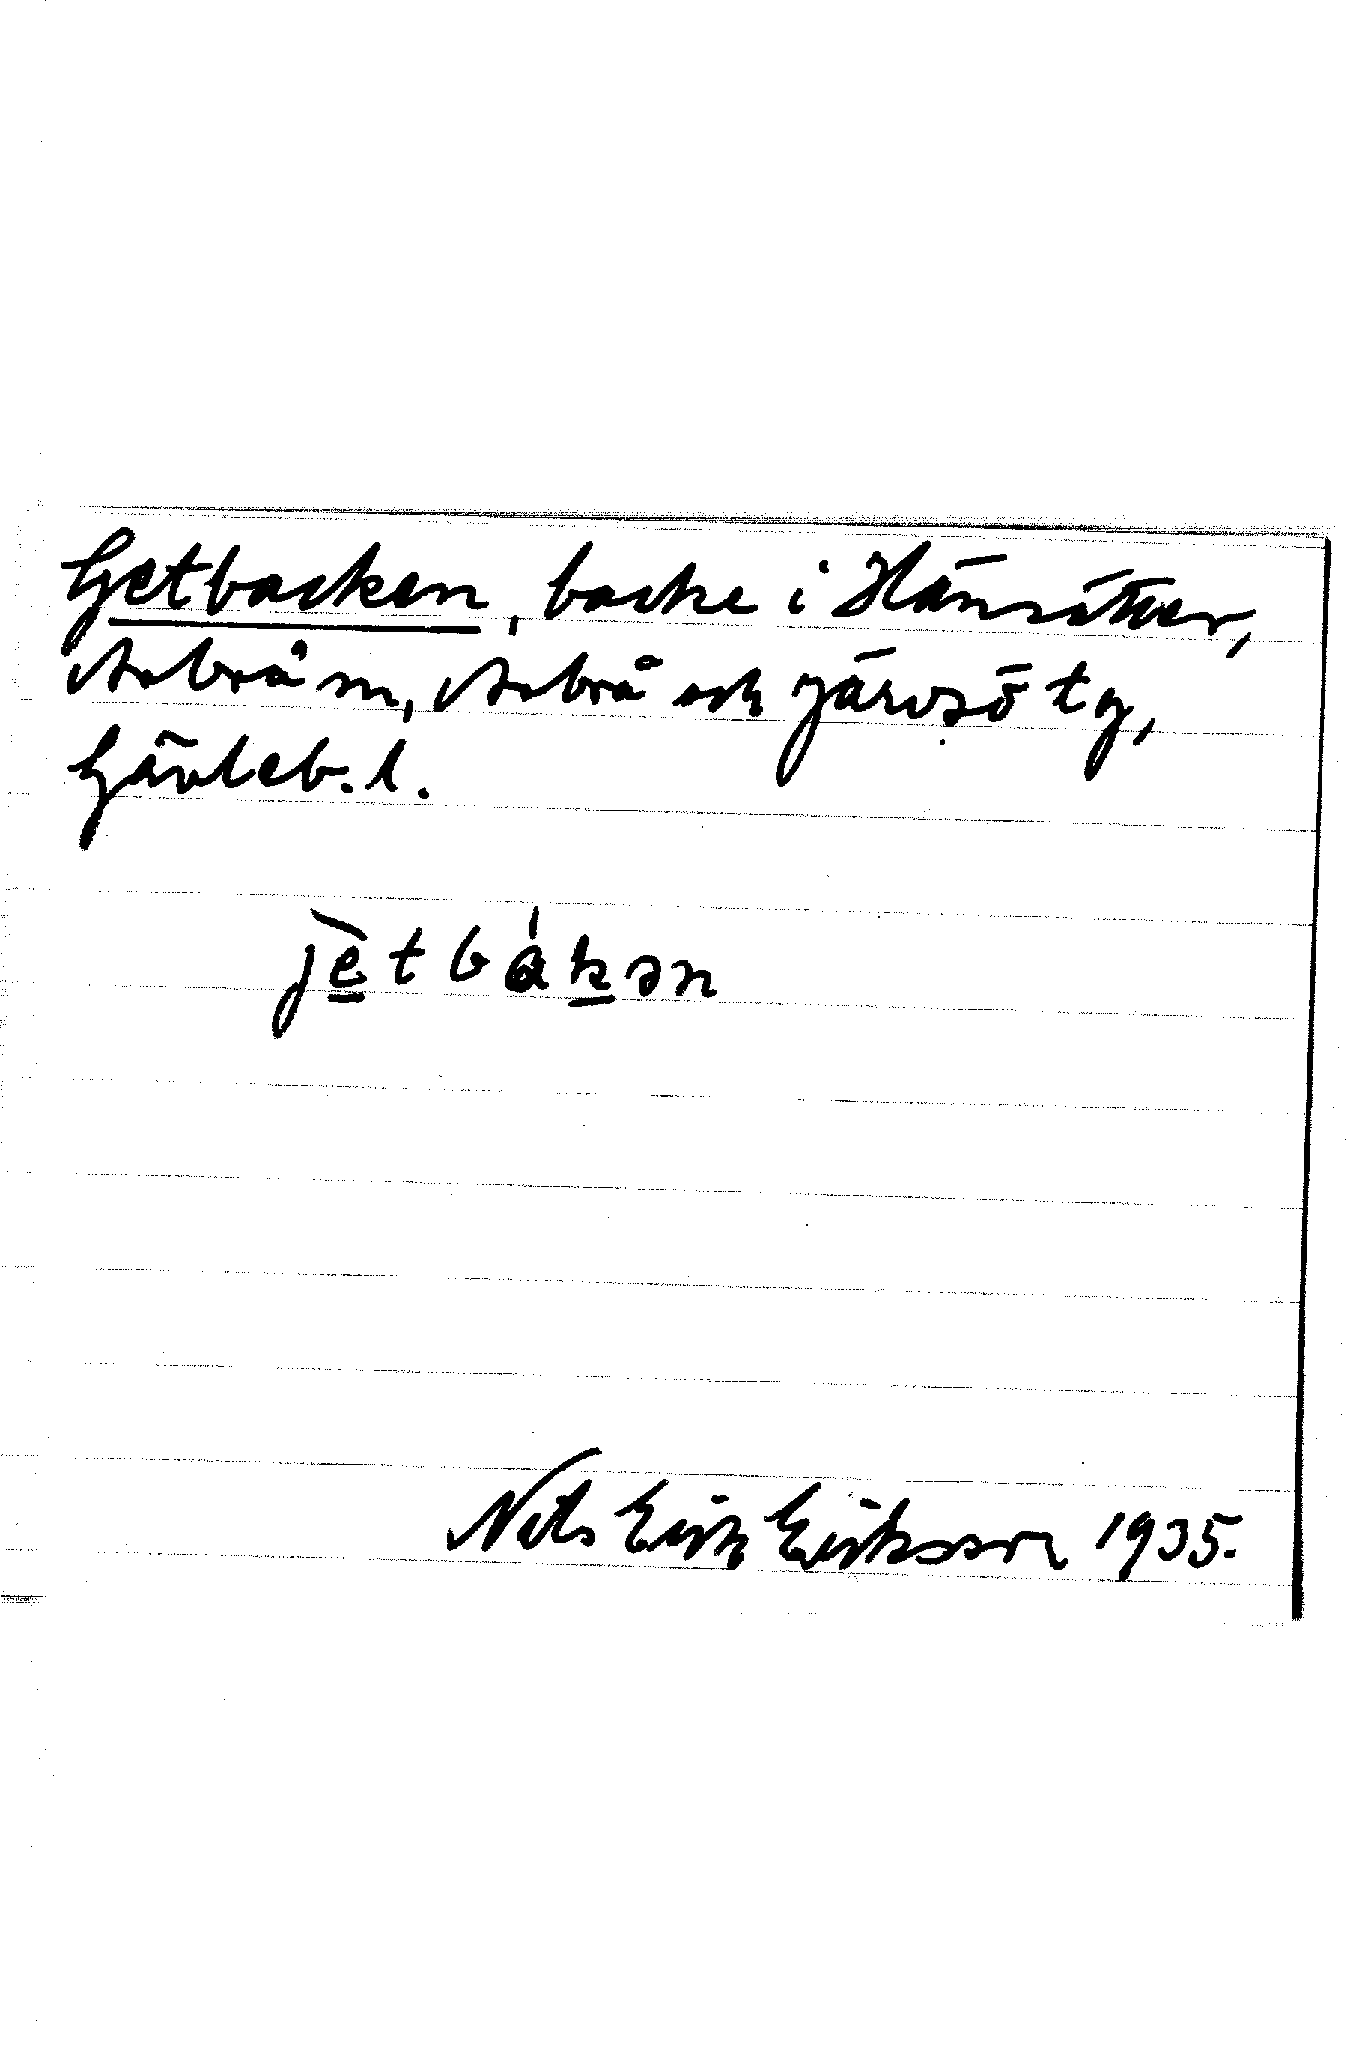 Getbacken, backe i Hänsätter,
Arbrå sn, Arbrå och Järvsö tg,
Gävleb. l.
jètbákən
Nils Erik Eriksson 1935.